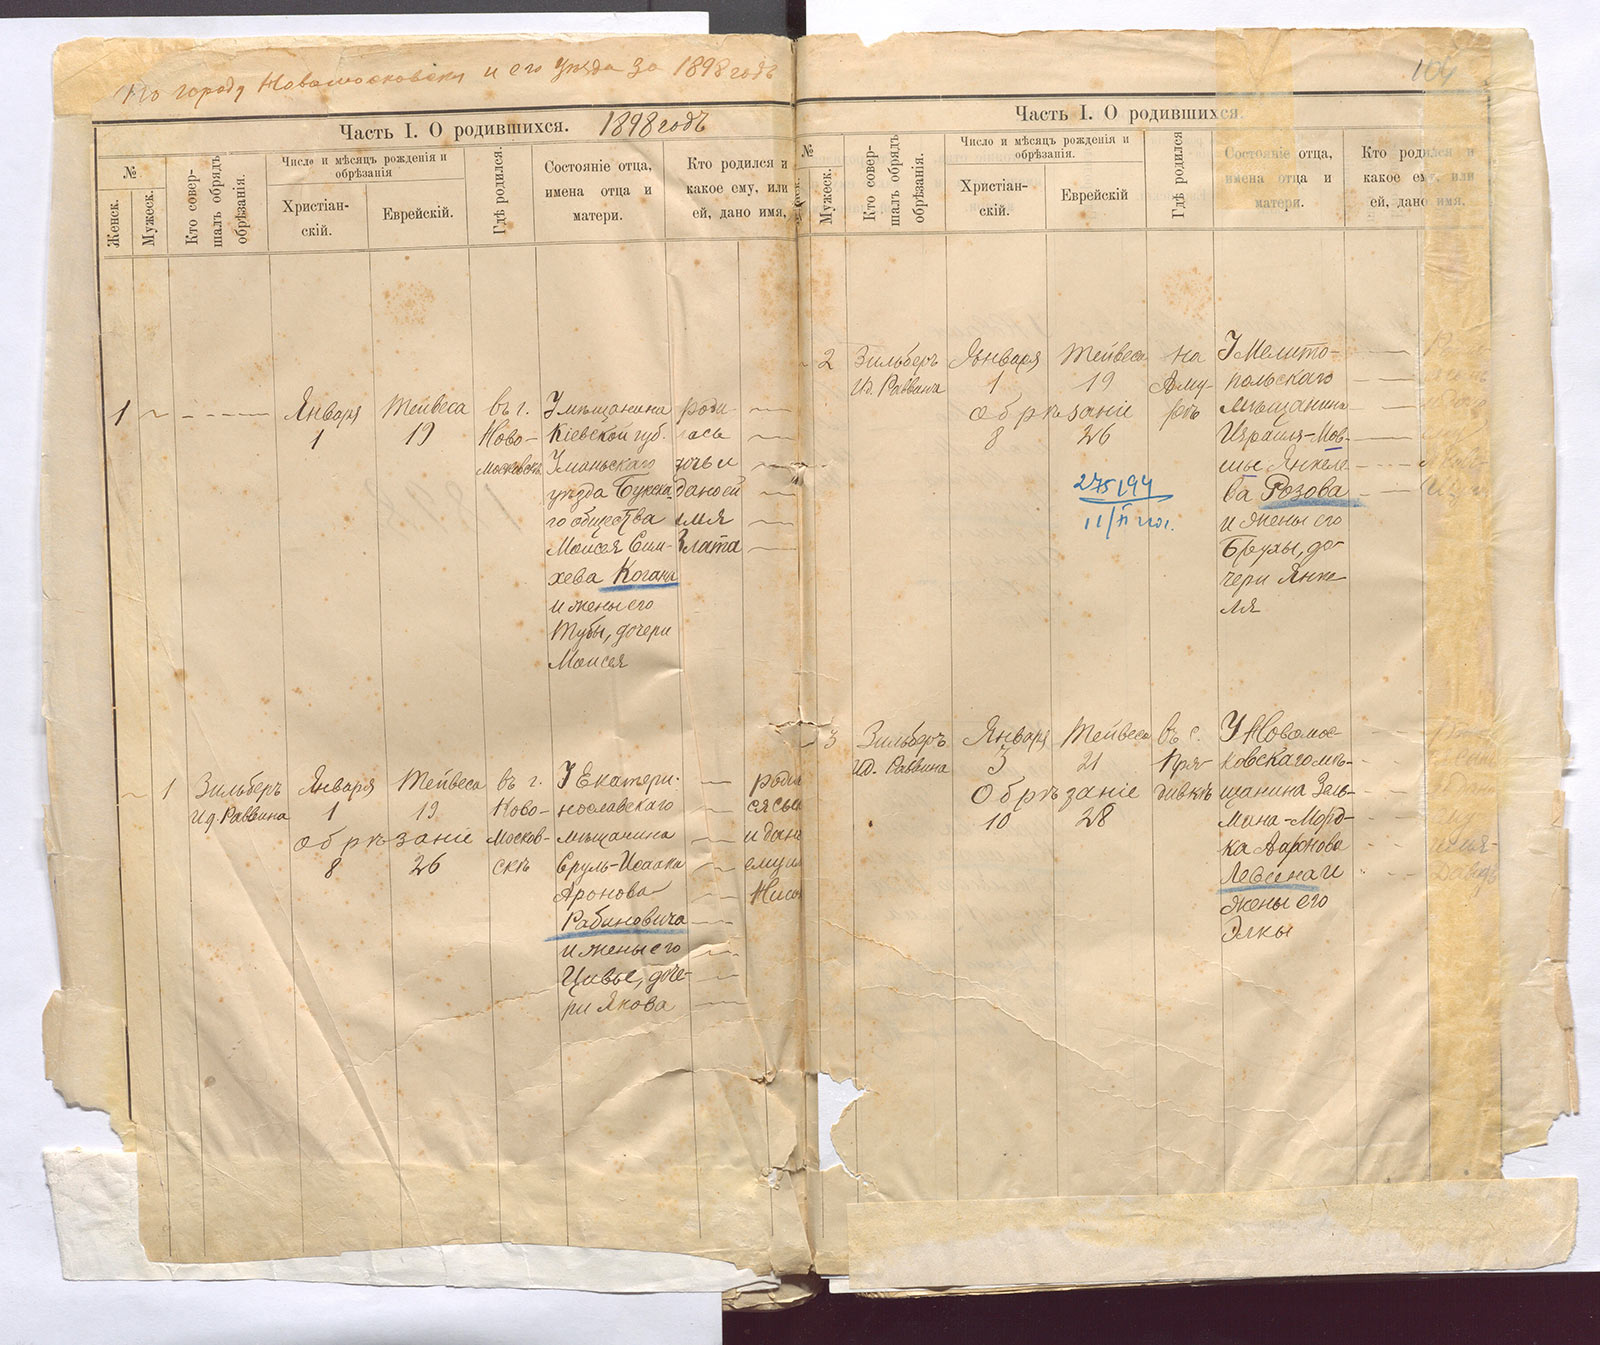 По городу Новомосковску и его уезда за 1898 годъ
Часть I. О родившихся. 1898 годъ
№
Женск.
Мужеск.
Кто совер-
шалъ обрядъ
обрѣзанія.
Число и мѣсяцъ рожденія и
обрѣзанія
Христіан-
скій.
Еврейскій.
Гдѣ родился.
Состояніе отца,
имена отца и
матери.
Кто родился и
какое ему, или
ей, дано имя,
1
Января
1
Тейвеса
19
въ г.
Ново-
московскѣ
У мѣщанина
Кіевской губ.
Уманьскаго
уѣзда Букска-
го общества
Моисея Сим-
хева Когана
и жены его
Тубы, дочери
Моисея
роди-
лась
дочь и
дано ей
имя
Злата
1
Зильберъ
Ид. Раввина
Января
1
Тейвеса
19
обрѣзаніе
8
26
въ г.
Ново-
москов-
скѣ
У Екатери-
нославскаго
мѣщанина
Сруль-Исаака
Аронова
Рабиновича
и жены его
Цивье, доче-
ри Якова
роди
ся сы
и дан
ему и
104
Часть I. О родившихся.
№
Мужеск.
Кто совер-
шалъ обрядъ
обрѣзанія.
Число и мѣсяцъ рожденія и
обрѣзанія.
Христіан-
скій.
Еврейскій
Гдѣ родился
Состояніе отца,
имена отца и
матери.
Кто родился и
какое ему, или
ей, дано имя,
2
Зильберъ
Ид. Раввина
Января
1
Тейвеса
19
обрѣзаніе
8
26
на
Аму-
рѣ
У Мелито-
польскаго
мѣщанина
Израиля-Мов-
ши Янкеле-
ва Розова
и жены его
Брухи, до-
чери Янке-
ля
275194
3
Зильберъ
Ид. Раввина
Января
3
Тейвеса
21
Обрѣзаніе
10
28
въ с.
У Новомос-
ковскаго мѣ-
щанина Зель-
мана-Морд-
ка Ааронова
Левина и
жены его
Элки
имя
Давидъ